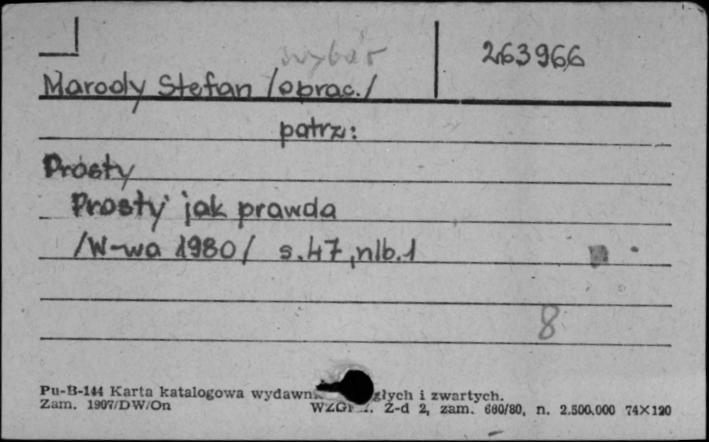 wybór
263966
Marody Stefan /oprac./
patrz:
Prosty
Prosty jak prawda
/W-wa 1980/ s.47,nlb.1
8
Pu-B-144 Karta katalogowa wydawn głych i zwartych.
Zam. 1907/DW/On Z-d 2, zam. 680/80, n. 2.500.000 74X120